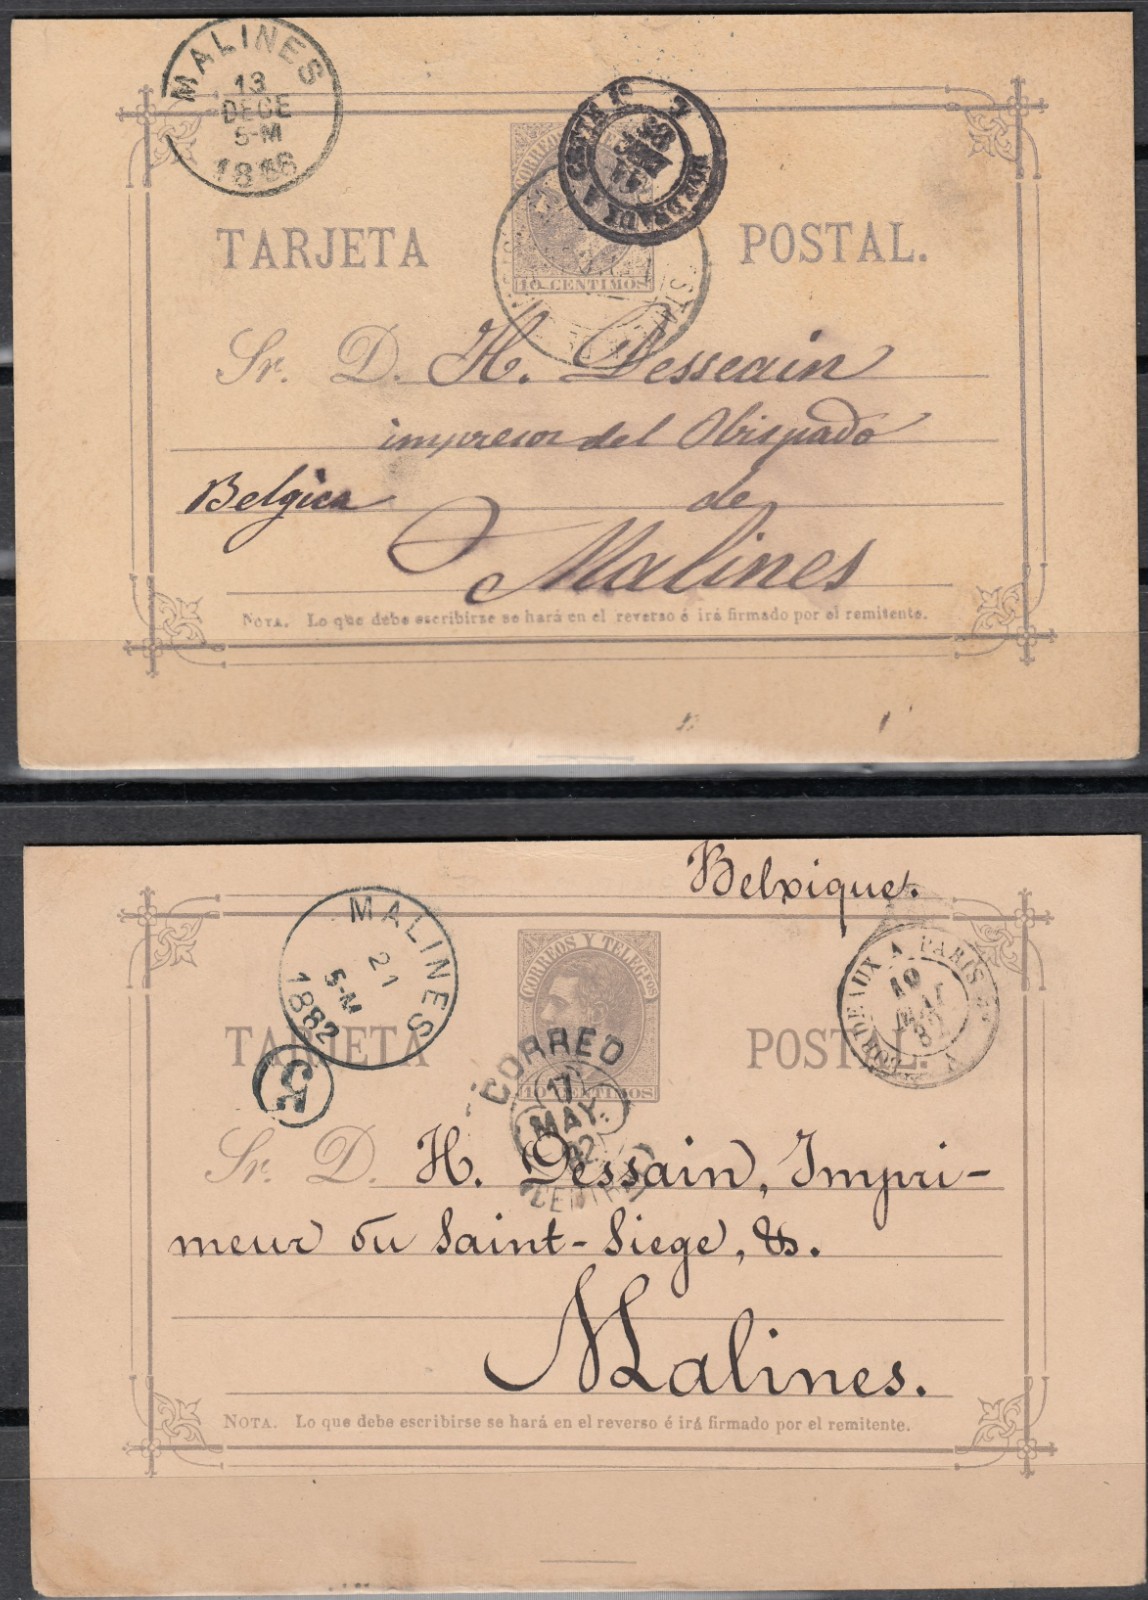 MALINES
13
DECE
5-M
CORREO
TARJETA POSTAL.
10 CENTIMOS
Sr. D. H. Desseain
impresor del Obispado
Belgica de
Malines
NOTA. Lo que debe escribirse se hará en el reverso é irá firmado por el remitente.
Belxique.
MALINES
21
5-M
1882
CORREOS Y TELEGFOS
BORDEAUX A PARIS
19
MAI
82
TARJETA POSTAL.
CORREO
17
MAY
82
CENTRAL
10 CENTIMOS
5
Sr. D. H. Dessain, Impri-
meur du Saint-Siege, &.
Malines.
NOTA. Lo que debe escribirse se hará en el reverso é irá firmado por el remitente.